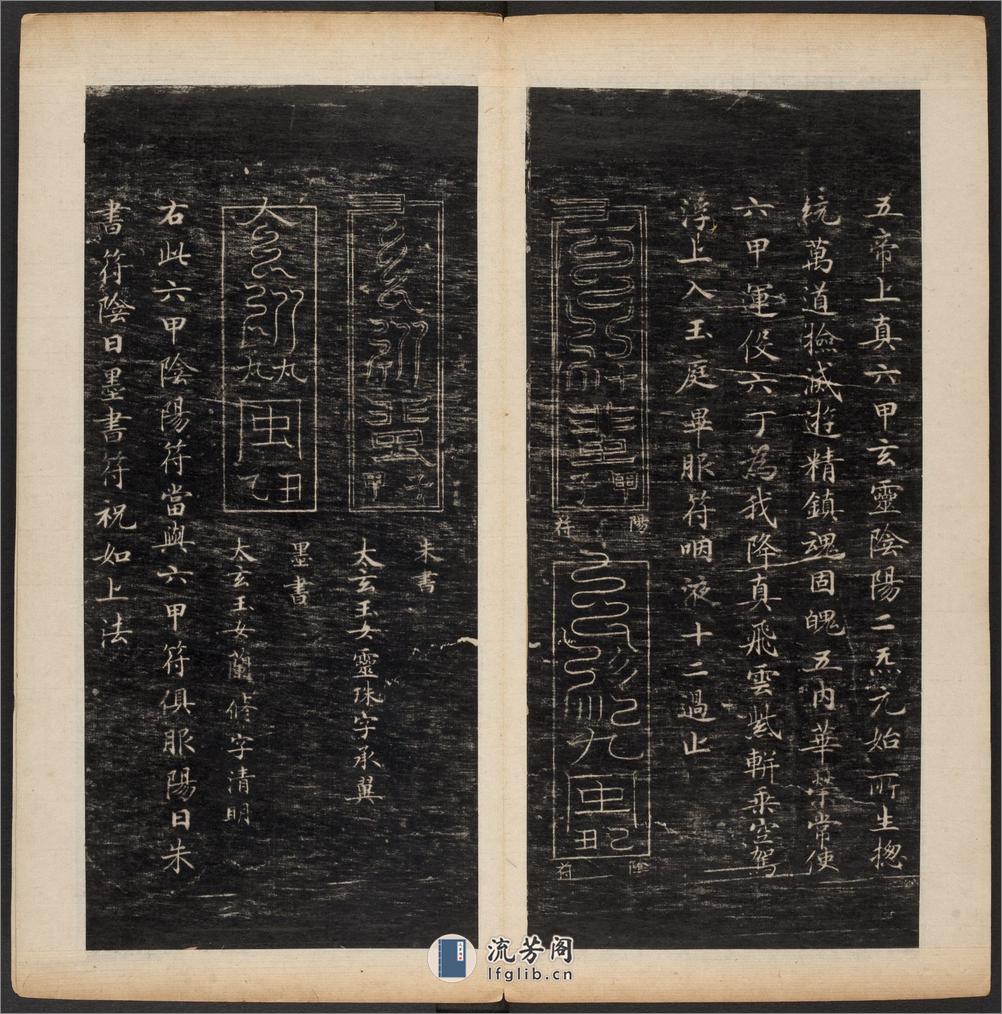 五帝上真六甲玄靈陰陽二炁元始所生揔
統萬道撿滅遊精鎮魂固魄五內華榮常使
六甲運役六丁為我降真飛雲紫軿乘空駕
浮上入玉庭畢服符咽液十二過止
陽
符
陰
符
朱書
太玄玉女靈珠字承翼
墨書
太玄玉女蘭修字清明
右此六甲陰陽符當與六甲符俱服陽日朱
書符陰日墨書符祝如上法
流芳阁
lfglib.cn